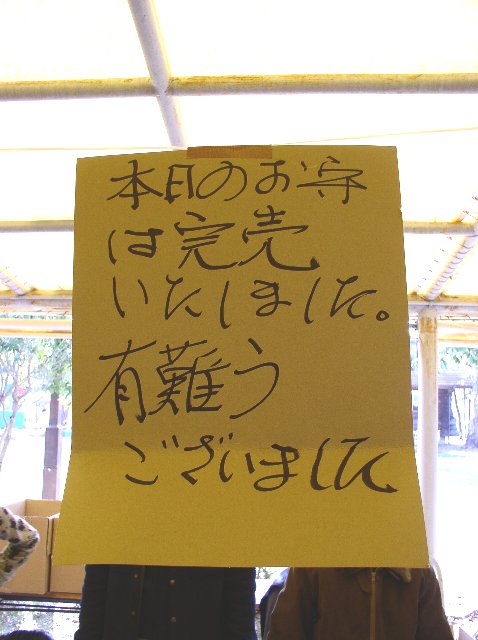 本日のお守
は完売
いたしました。
有難う
ございました